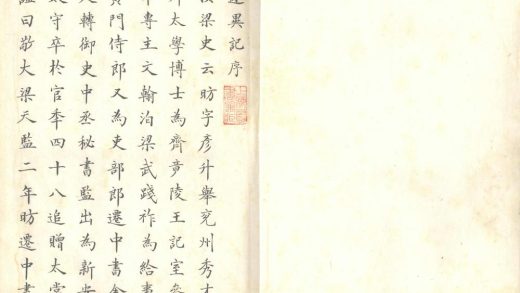 述異記序
按梁史云昉字彥升舉兗州秀才
拜太學博士為齊竟陵王記室參
軍專主文翰泊梁武踐祚為給事
黃門侍郎又為吏部郎遷中書舍
人轉御史中丞秘書監出為新安
太守卒於官年四十八追贈太常
謚曰敬大梁天監二年昉遷中書